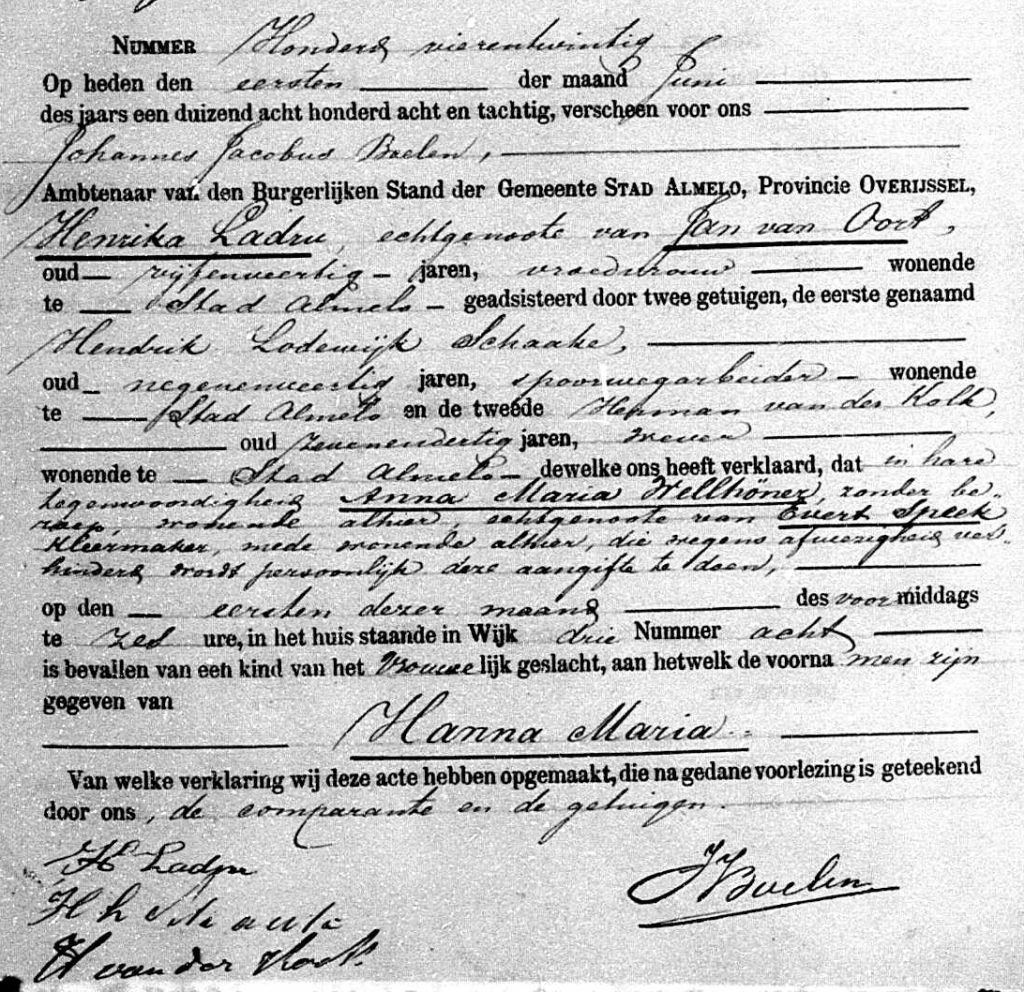 NUMMER Honderd vierentwintig
Op heden den eersten der maand Juni
des jaars een duizend acht honderd acht en tachtig, verscheen voor ons
Johannes Jacobus Boelen,
Ambtenaar van den Burgerlijken Stand der Gemeente STAD ALMELO, Provincie OVERIJSSEL,
Henrika Ladru, echtgenoote van Jan van Oort,
oud vijfenveertig jaren, vroedvrouw wonende
te Stad Almelo geadsisteerd door twee getuigen, de eerste genaamd
Hendrik Lodewijk Schaake,
oud negenenveertig jaren, spoorwegarbeider wonende
te Stad Almelo en de tweede Herman van der Kolk,
oud zevenendertig jaren, wever
wonende te Stad Almelo dewelke ons heeft verklaard, dat in hare
tegenwoordigheid Anna Maria Wellhöner, zonder be-
roep, wonende alhier, echtgenoote van Evert Speek
kleermaker, mede wonende alhier, die wegens afwezigheid ver-
hinderd wordt persoonlijk deze aangifte te doen,
op den eersten dezer maand des voormiddags
te zes ure, in het huis staande in Wijk drie Nummer acht
is bevallen van een kind van het Vrouwelijk geslacht, aan hetwelk de voornamen zijn
gegeven van
Hanna Maria
Van welke verklaring wij deze acte hebben opgemaakt, die na gedane voorlezing is geteekend
door ons, de comparante en de getuigen.
H Ladru
JJBoelen
H van der Kolk